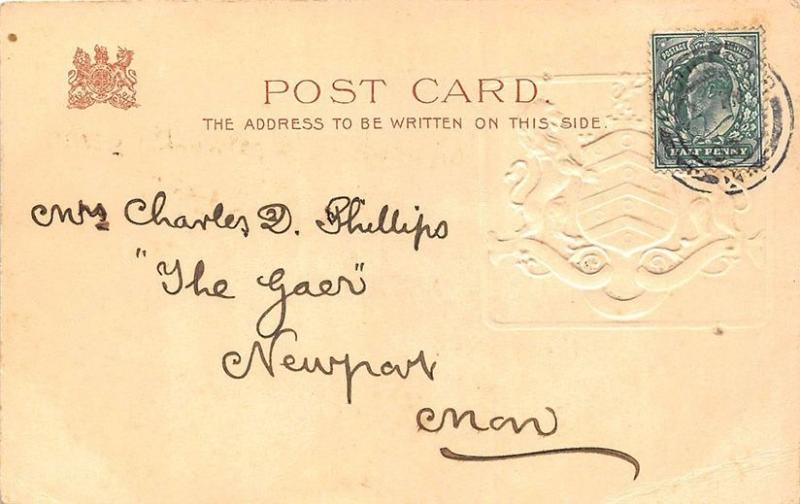 POST CARD.
THE ADDRESS TO BE WRITTEN ON THIS SIDE.
POSTAGE REVENUE
HALF PENNY
Mrs Charles D. Phillips
"The Gaer"
Newport
Mon